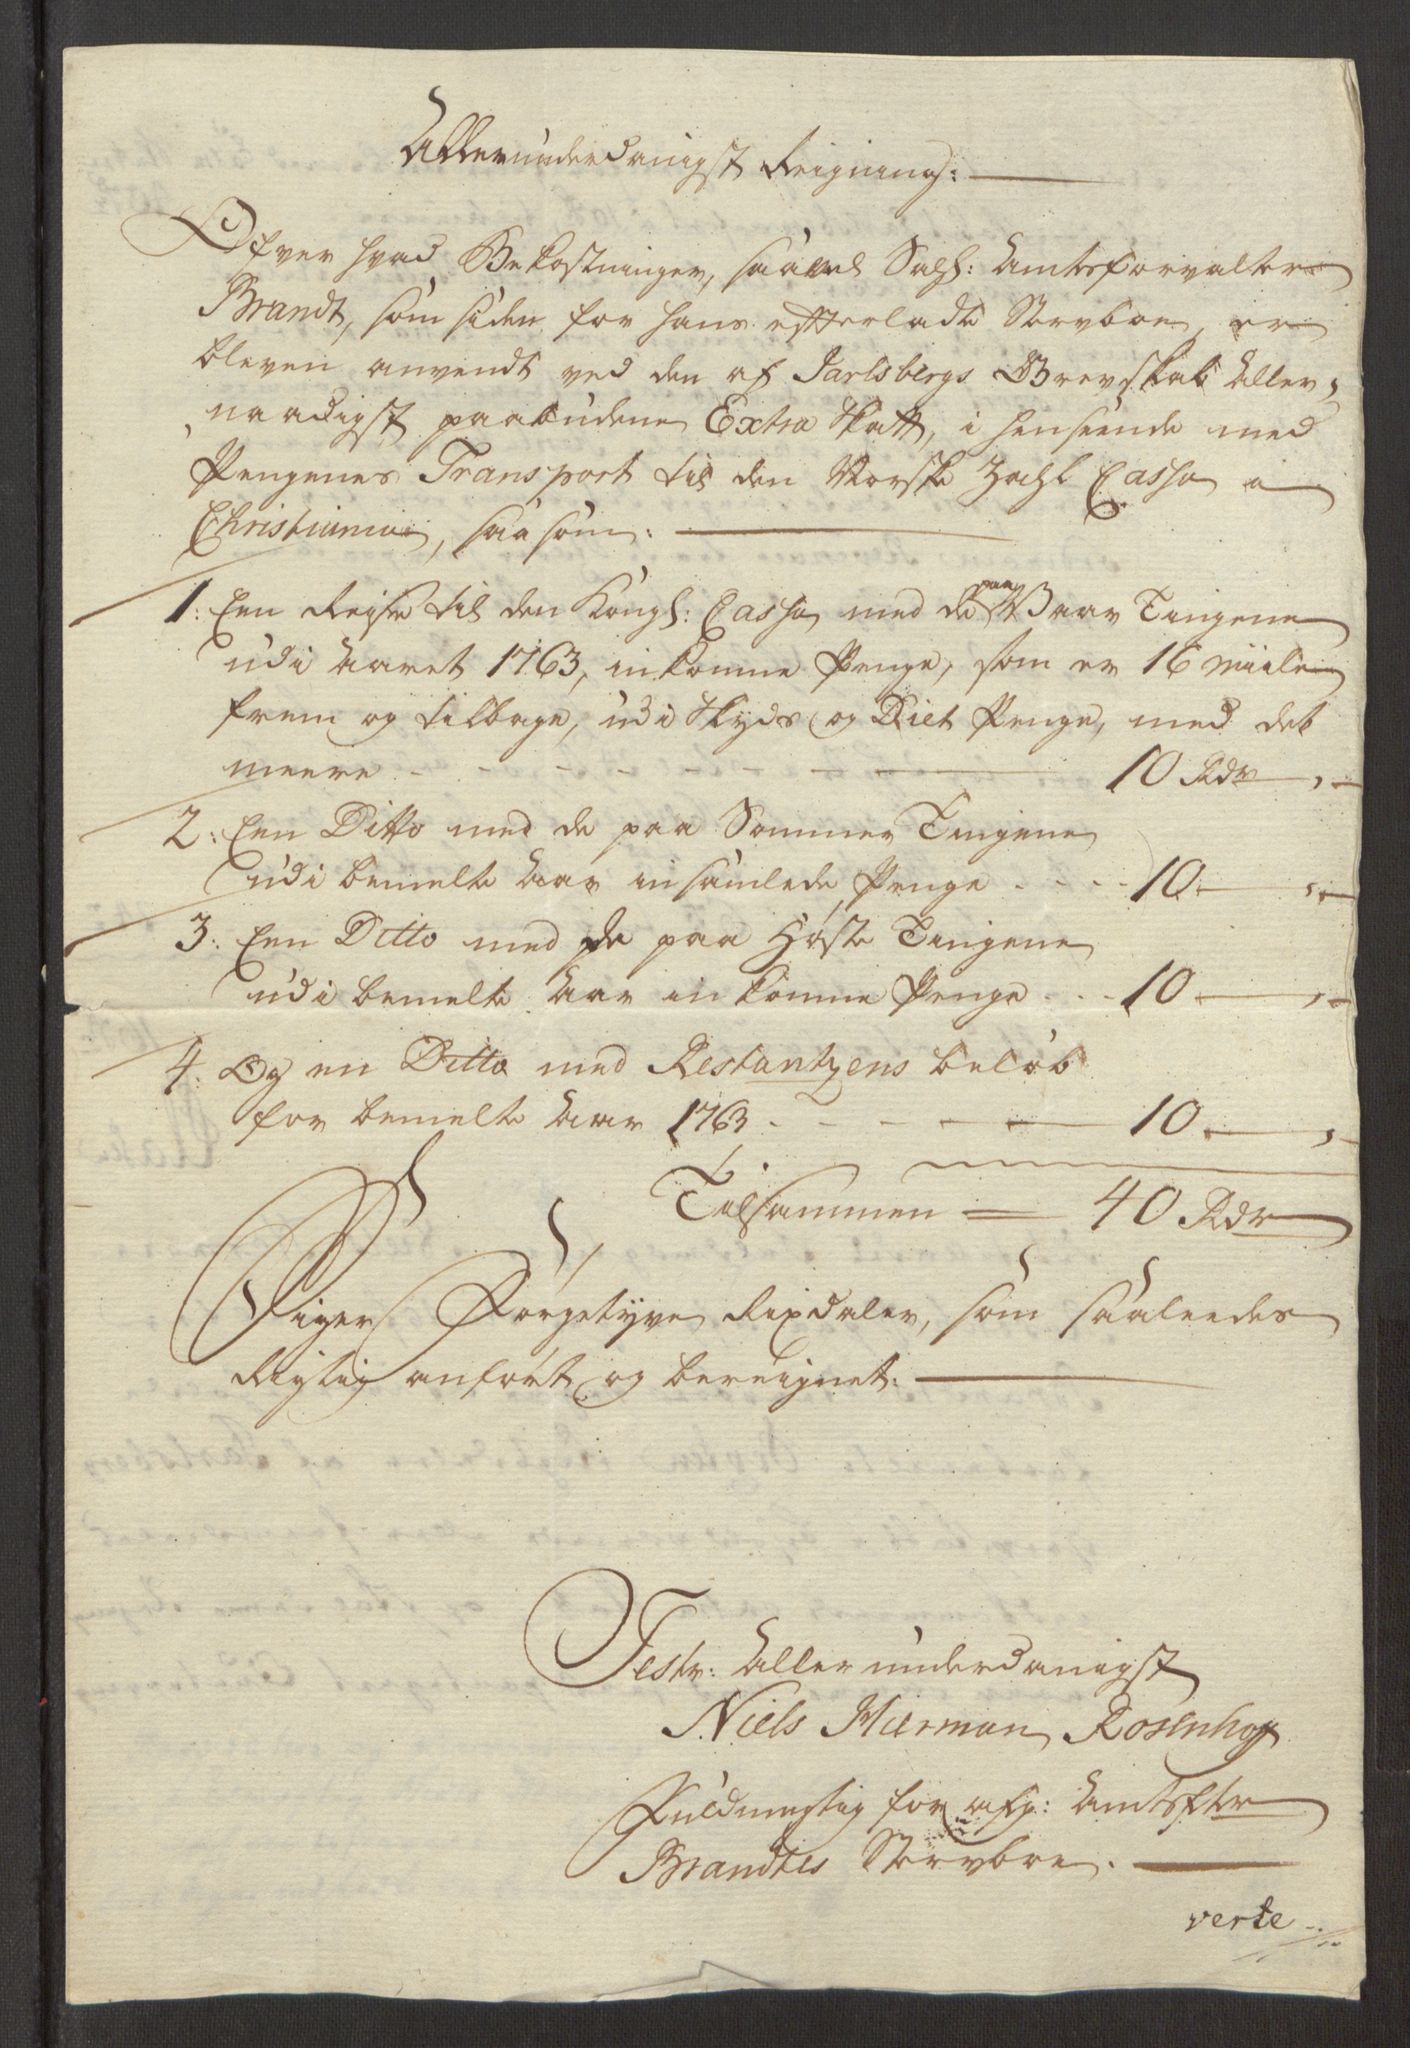 Allerunderdanigst Reigning:
Ofver hvad Bekostninger, saavel Salh: Amtsforvalter
Brandt, som siden for hans efterladte Stervboe, er
bleven anvendt ved den af Jarlsbergs Grevskab Aller,
naadigst paabudene Extra Skatt, i henseende med
Pengenes Transport til den Norske Zahl Cassa i
Christiania, saasom:
1: Een Reise til den Kongl: Cassa med de paa Vaar Tingene
udi Aaret 1763, inkomne Penge, som er 16 Miile
frem og tilbage, udi Skyds og Diet Penge, med det
meere - - - - - - - 10 Rdr ,,
2: Een Ditto med de paa Sommer Tingene
udi bemelte Aar insamlede Penge - - - 10 ,,
3: Een Ditto med de paa Høste Tingene
udi bemelte Aar inkomne Penge - - - 10 ,,
4: Og en Ditto med Restantzens beløb
for bemelte Aar 1763 - - - - - 10 ,,
Tilsammen = 40 Rdr
Siger Førgetyve Rixdaler, som saaleedes
Rigtig anført og bereignet:
Testr: Allerunderdanigst
Niels Hierman Rosenhof
Fuldmegtig for afg: Amtsfvr
Brandtes Stervboe.
verte